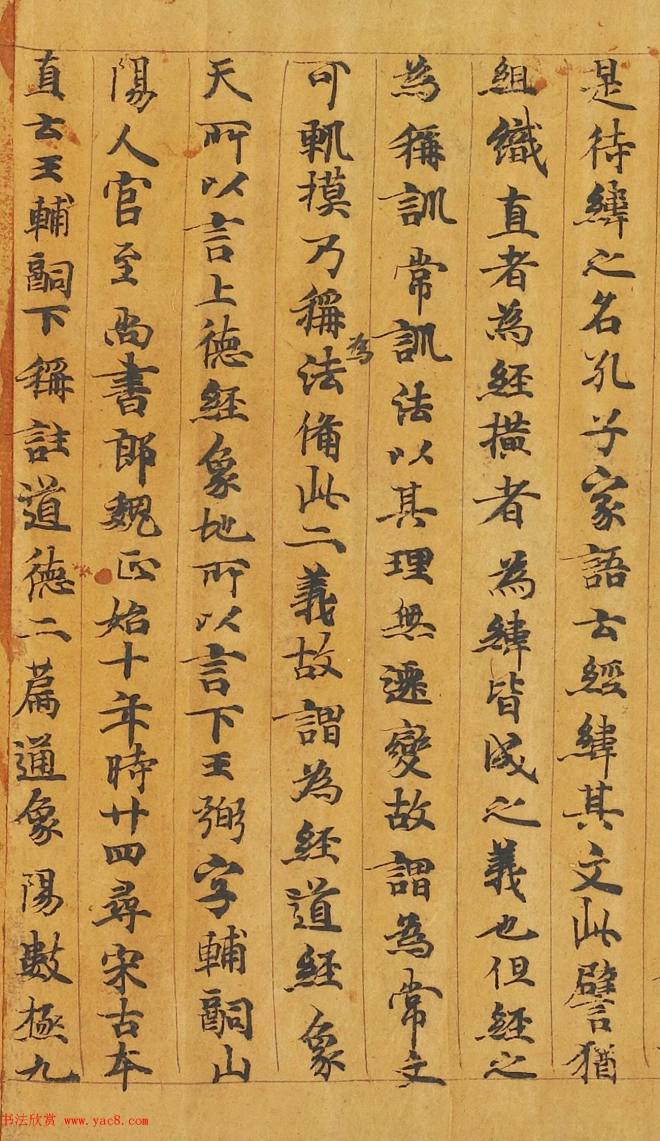 是待緯之名孔子家語云經緯其文此譬猶
組織直者為經撗者為緯皆成之義也但經之
為稱訓常訓法以其理無遷變故謂為常文
可軌摸乃稱為法俻此二義故謂為經道經象
天所以言上德經象地所以言下王弼字輔嗣山
陽人官至尚書郎魏正始十年時廿四尋宋古本
直云王輔嗣下稱註道德二篇通象陽數極九
书法欣赏 www.yac8.com